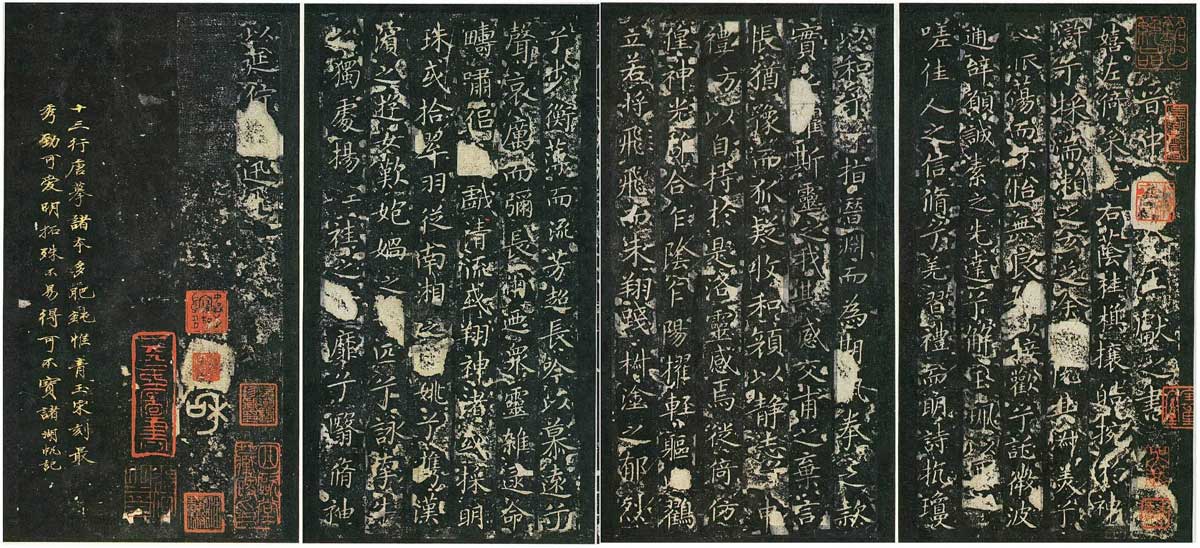 晋中令王獻之書
嬉左倚采旄右蔭桂旗攘皓捥於神
滸兮採湍瀬之玄芝余其淑美兮
心振蕩而不怡無良以接歡兮託微波
通辭願誠素之先達兮解玉珮以
嗟佳人之信脩兮羌習禮而明詩抗瓊
以和予指潛淵而為期眷之款
實懼斯靈之我欺感交甫之棄言
悵猶豫而狐疑收和顏以静志兮申
禮方以自持於是洛靈感焉徙倚仿
偟神光離合乍陰乍陽擢輕軀鶴
立若將飛而未翔踐椒塗之郁烈
兮步蘅薄而流芳超長吟以慕遠兮
聲哀厲而彌長爾迺衆靈雜遝命
疇嘯侣或戲清流或翔神渚或採明
珠或拾翠羽從南湘之二姚兮攜漢
濱之遊女歎炮媧之匹兮詠牽牛
之獨處揚輕袿之靡兮翳脩袖
以延佇迅飛
十三行唐摹諸本多肥鈍惟青玉宋刻最
秀勁可愛明拓殊不易得可不寶諸湖帆記